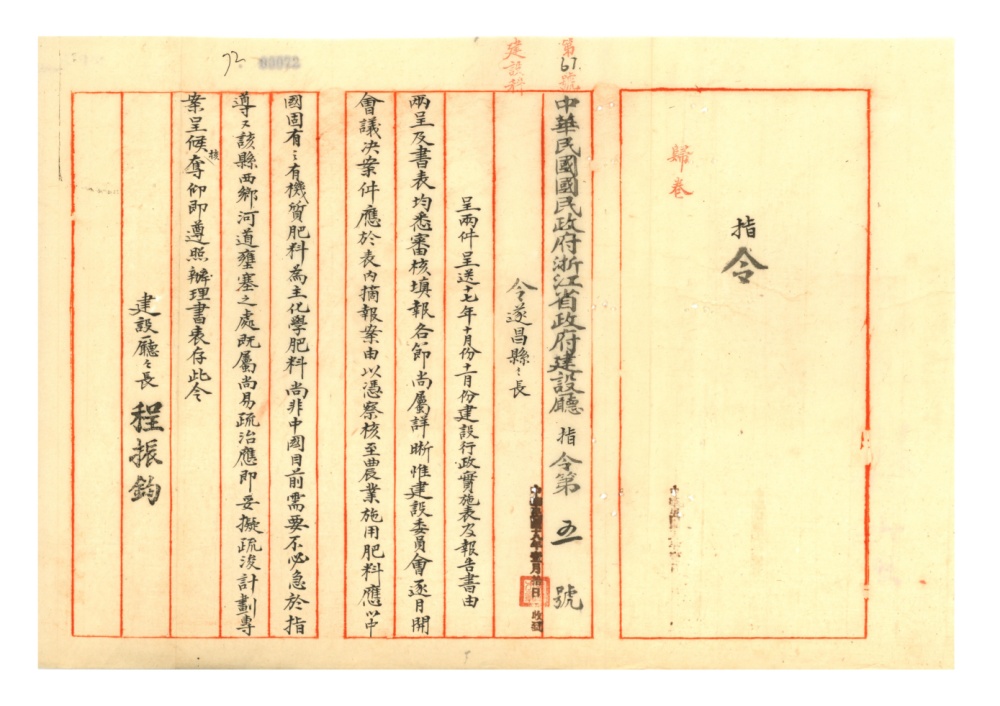 72 00072
第67號
建設科
歸卷
指令
中華民國國民政府浙江省政府建設廳指令第五號
令遂昌縣縣長
呈兩件呈送十七年十月份十一月份建設行政實施表及報告書由
兩呈及書表均悉審核填報各節尚屬詳晰惟建設委員會逐月開
會議决案件應於表內摘報案由以憑察核至農業施用肥料應以中
國固有之有機質肥料為主化學肥料尚非中國目前需要不必急於指
導又該縣西鄉河道壅塞之處既屬尚易疏治應即妥擬疏浚計劃專
案呈候核奪仰即遵照辦理書表存此令
建設廳廳長 程振鈞